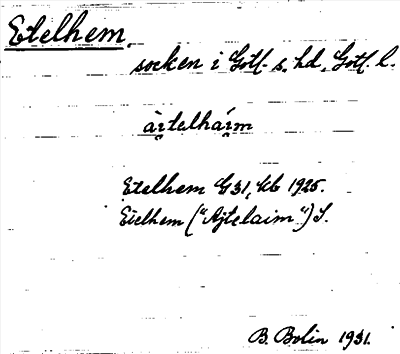 Etelhem
socken i Gotl. s. hd, Gotl. l.
àı̯telháı̯m
Etelhem G31, kb 1925.
Etelhem ("Ajtelaim") S.
B. Bolin 1931.